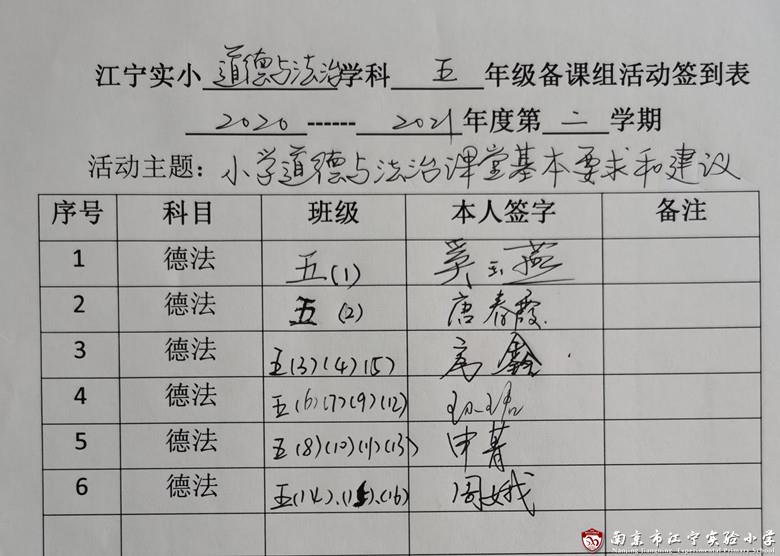 江宁实小 道德与法治 学科 五 年级备课组活动签到表
2020 ------ 2021 年度第 二 学期
活动主题：小学道德与法治课堂基本要求和建议
序号 科目 班级 本人签字 备注
1 德法 五(1) 吴玉燕
2 德法 五(2) 唐春霞
3 德法 五(3)(4)(5) 高鑫
4 德法 五(6)(7)(9)(12)
5 德法 五(8)(10)(11)(13) 申菁
6 德法 五(14).(15).(16) 周娥
南京市江宁实验小学
Nanjing Jiangning Experimental Primary School